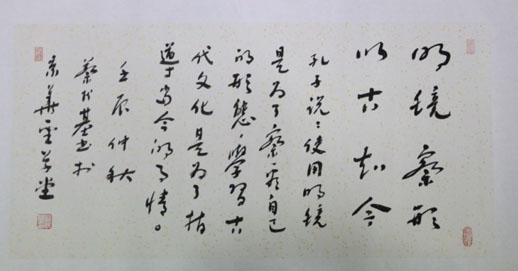 明镜察形
以古知今
孔子说:使用明镜
是为了察看自己
的形态,學習古
代文化是为了指
導当今的事情。
壬辰仲秋
蔡 基书于
京華 草堂